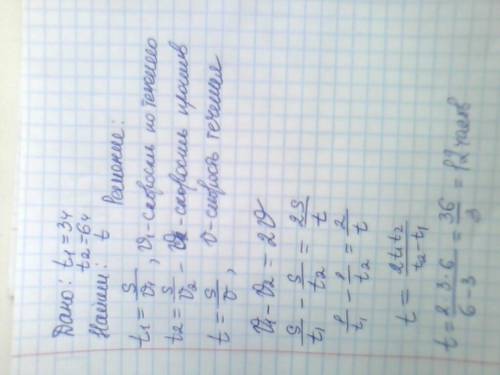 Дано: t₁ = 3ч
t₂ = 6ч
Найти: t Решение:
t₁ = S/v₁, v₁ - скорость по течению
t₂ = S/v₂ - v₂ - скорость против
t = S/v, v - скорость течения
v₁ - v₂ = 2v
S/t₁ - S/t₂ = 2S/t
1/t₁ - 1/t₂ = 2/t
t = 2t₁t₂/t₂-t₁
t = 2·3·6/6-3 = 36/3 = 12 часов